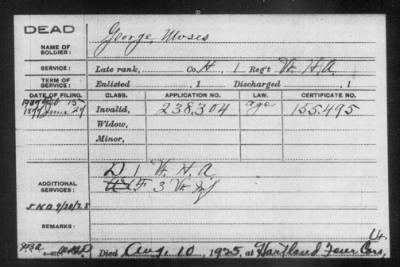 DEAD
NAME OF SOLDIER: George Moses
SERVICE: Late rank, Co. H, 1 Reg't Vt. H.A.
TERM OF SERVICE: Enlisted , 1 Discharged , 1
DATE OF FILING. CLASS. APPLICATION NO. LAW. CERTIFICATE NO.
Invalid, 238,304 age 155,495
June 27
Widow,
Minor,
ADDITIONAL SERVICES:
D 1 Vt. H.A.
3 Vt. Inf
REMARKS:
Died Aug. 10, 1925, at Hartland Four Cors, Vt.